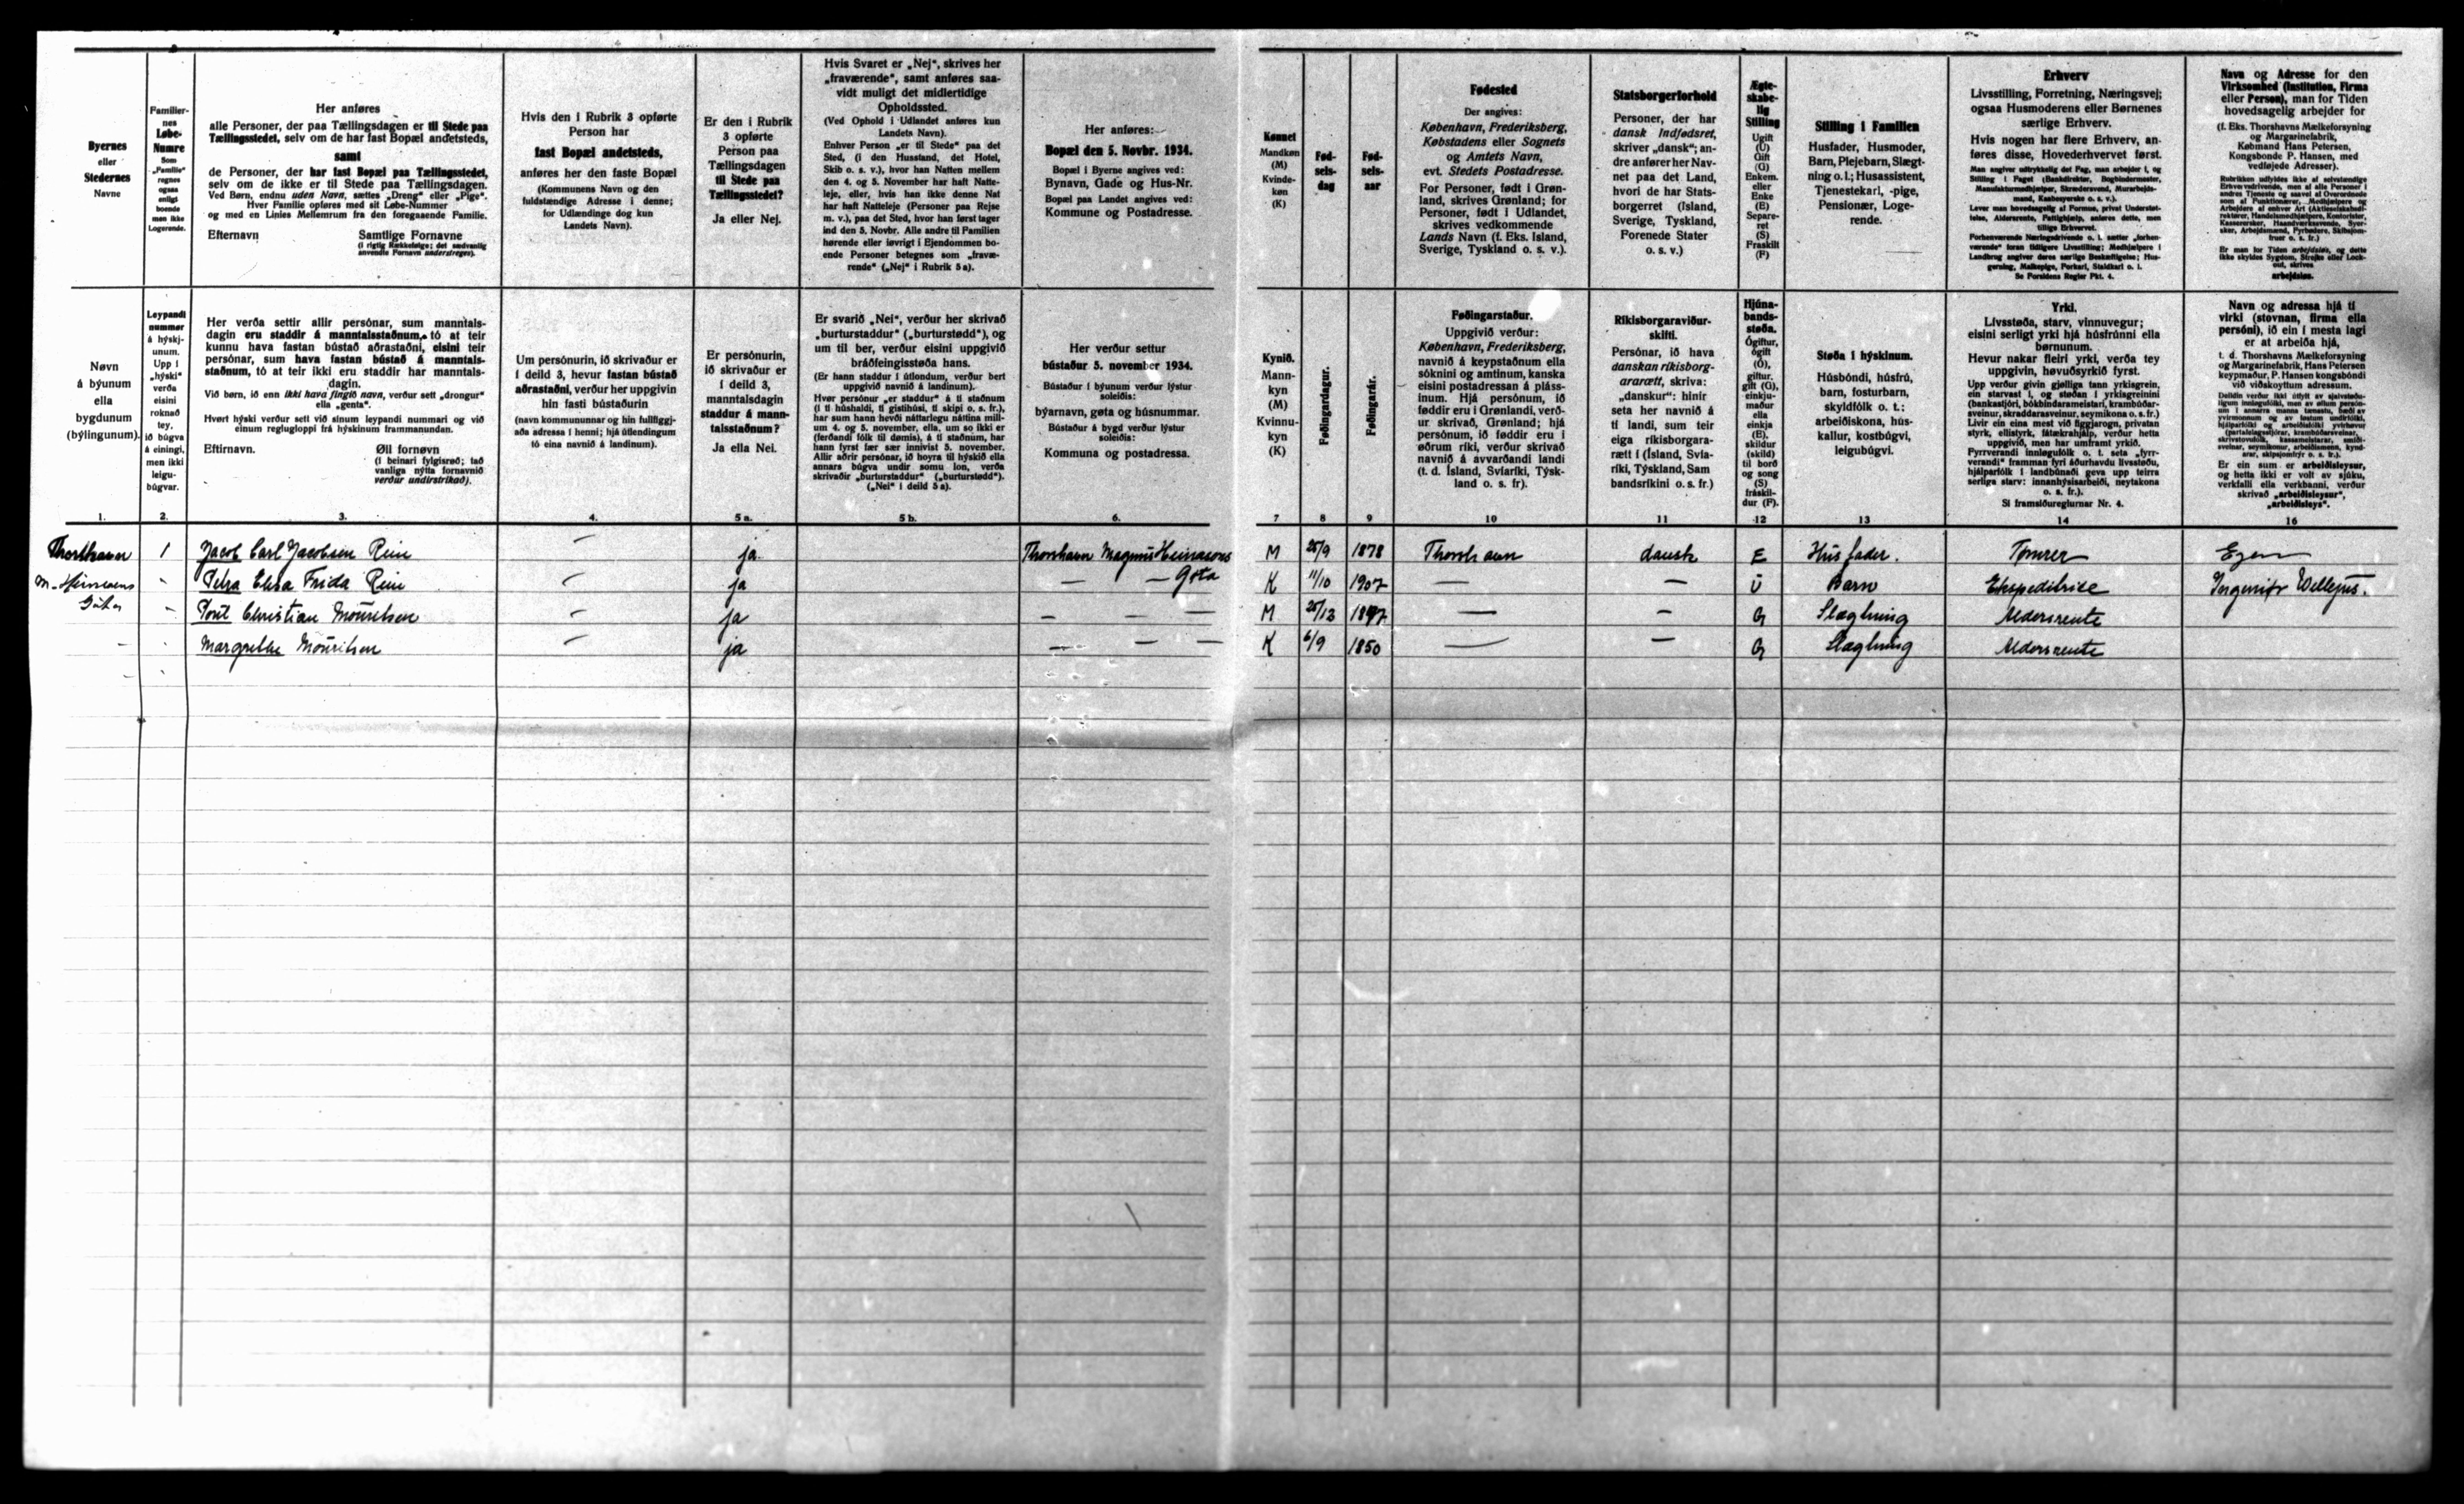 Byernes
eller
Stedernes
Navne
Familier-
nes
Løbe-
Numre
Som
„Familie"
regnes
ogsaa
enligt
boende
men ikke
Logerende.
Her anføres
alle Personer, der paa Tællingsdagen er til Stede paa
Tællingsstedet, selv om de har fast Bopæl andetsteds,
samt
de Personer, der har fast Bopæl paa Tællingsstedet,
selv om de ikke er til Stede paa Tællingsdagen.
Ved Børn, endnu uden Navn, sættes „Dreng" eller „Pige".
Hver Familie opføres med sit Løbe-Nummer
og med en Linies Mellemrum fra den foregaaende Familie.
Efternavn Samtlige Fornavne
(i rigtig Rækkefølge; det sædvanlig
anvendte Fornavn understreges).
Hvis den i Rubrik 3 opførte
Person har
fast Bopæl andetsteds,
anføres her den faste Bopæl
(Kommunens Navn og den
fuldstændige Adresse i denne;
for Udlændinge dog kun
Landets Navn).
Er den i Rubrik
3 opførte
Person paa
Tællingsdagen
til Stede paa
Tællingsstedet?
Ja eller Nej.
Hvis Svaret er „Nej", skrives her
„fraværende", samt anføres saa-
vidt muligt det midlertidige
Opholdssted.
(Ved Ophold i Udlandet anføres kun
Landets Navn).
Enhver Person „er til Stede" paa det
Sted, (i den Husstand, det Hotel,
Skib o. s. v.), hvor han Natten mellem
den 4. og 5. November har haft Natte-
leje, eller, hvis han ikke denne Nat
har haft Natteleje (Personer paa Rejse
m. v.), paa det Sted, hvor han først tager
ind den 5. Novbr. Alle andre til Familien
hørende eller iøvrigt i Ejendommen bo-
ende Personer betegnes som „fravæ-
rende" („Nej" i Rubrik 5a).
Her anføres:
Bopæl den 5. Novbr. 1934.
Bopæl i Byerne angives ved:
Bynavn, Gade og Hus-Nr.
Bopæl paa Landet angives ved:
Kommune og Postadresse.
Kønnet
Mandkøn
(M)
Kvinde-
køn
(K)
Fød-
sels-
dag
Fød-
sels-
aar
Fødested
Der angives:
København, Frederiksberg,
Købstadens eller Sognets
og Amtets Navn,
evt. Stedets Postadresse.
For Personer, født i Grøn-
land, skrives Grønland; for
Personer, født i Udlandet,
skrives vedkommende
Lands Navn (f. Eks. Island,
Sverige, Tyskland o. s. v.).
Statsborgerforhold
Personer, der har
dansk Indfødsret,
skriver „dansk"; an-
dre anfører her Nav-
net paa det Land,
hvori de har Stats-
borgerret (Island,
Sverige, Tyskland,
Forenede Stater
o. s. v.)
Ægte-
skabe-
lig
Stilling
Ugift
(U)
Gift
(G)
Enkem.
eller
Enke
(E)
Separe-
ret
(S)
Fraskilt
(F)
Stilling i Familien
Husfader, Husmoder,
Barn, Plejebarn, Slægt-
ning o. l.; Husassistent,
Tjenestekarl, -pige,
Pensionær, Loge-
rende.
Erhverv
Livsstilling, Forretning, Næringsvej;
ogsaa Husmoderens eller Børnenes
særlige Erhverv.
Hvis nogen har flere Erhverv, an-
føres disse, Hovederhvervet først.
Man angiver udtrykkelig det Fag, man arbejder i, og
Stilling i Faget (Bankdirektør, Bogbindermester,
Manufakturmedhjælper, Skrædersvend, Murarbejds-
mand, Kasbestyrske o. s. v.).
Lever man hovedsagelig af Formue, privat Understøt-
telse, Aldersrente, Fattighjælp, anføres dette, men
tillige Erhvervet.
Forhenværende Næringsdrivende o. l. sætter „forhen-
værende" foran tidligere Livsstilling; Medhjælpere i
Landbrug angiver deres særlige Beskæftigelse; Hus-
gerning, Malkepige, Forkarl, Staldkarl o. l.
Se Forsidens Regler Pkt. 4.
Navn og Adresse for den
Virksomhed (Institution, Firma
eller Person), man for Tiden
hovedsagelig arbejder for
(f. Eks. Thorshavns Mælkeforsyning
og Margarinefabrik,
Købmand Hans Petersen,
Kongsbonde P. Hansen, med
vedføjede Adresser).
Er man for Tiden arbejdsløs, og dette
ikke skyldes Sygdom, Strejke eller Lock-
out, skrives
arbejdsløs.
Nøvn
á býunum
ella
bygdunum
(býlingunum).
Leypandi
nummer
á hýskj-
unum.
Upp í
„hýski"
verða
eisini
roknað
tey,
ið búgva
á einingi,
men ikki
leigu-
búgvar.
Her verða settir allir persónar, sum manntals-
dagin eru staddir á manntalsstaðnum, tó at teir
kunnu hava fastan bústað aðrastaðni, eisini teir
persónar, sum hava fastan bústað á manntals-
staðnum, tó at teir ikki eru staddir har manntals-
dagin.
Við børn, ið enn ikki hava fingið navn, verður sett „drongur"
ella „genta".
Hvørt hýski verður sett við sínum leypandi nummari og við
einum regluglopp​i frá hýskinum frammanundan.
Eftirnavn. Øll fornøvn
(í beinari fylgisrøð; tað
vanliga nýtta fornavnið
verður undirstrikað).
Um persónurin, ið skrivaður er
í deild 3, hevur fastan bústað
aðrastaðni, verður her uppgivin
hin fasti bústaðurin
(navn kommununnar og hin fullfíggj-
aða adressa í henni; hjá útlendingum
tó eina navnið á landinum).
Er persónurin,
ið skrivaður er
í deild 3,
manntalsdagin
staddur á mann-
talsstaðnum?
Ja ella Nei.
Er svarið „Nei", verður her skrivað
„burturstaddur" („burturstødd"), og
um til ber, verður eisini uppgivið
bráðfeingisstøða hans.
(Er hann staddur í útlondum, verður bert
uppgivið navnið á landinum).
Hvør persónur „er staddur" á tí staðnum
(í tí húshaldi, tí gistihúsi, tí skipi o. s. fr.),
har sum hann hevði náttarlegu náttina mill-
um 4. og 5. november, ella, um so ikki er
(ferðandi fólk til dømis), á tí staðnum, har
hann fyrst fær sær innivist 5. november.
Allir aðrir persónar, ið hoyra til hýskið ella
annars búgva undir somu lon, verða
skrivaðir „burturstaddur" („burturstødd").
(„Nei" í deild 5 a).
Her verður settur
bústaður 5. november 1934.
Bústaður í býunum verður lýstur
soleiðis:
býarnavn, gøta og húsnummar.
Bústaður á bygd verður lýstur
soleiðis:
Kommuna og postadressa.
Kynið.
Mann-
kyn
(M)
Kvinnu-
kyn
(K)
Føðingardagur.
Føðingarár.
Føðingarstaður.
Uppgivið verður:
København, Frederiksberg,
navnið á keypstaðnum ella
sóknini og amtinum, kanska
eisini postadressan á pláss-
inum. Hjá persónum, ið
føddir eru í Grønlandi, verð-
ur skrivað, Grønland; hjá
persónum, ið føddir eru í
øðrum ríki, verður skrivað
navnið á avvarðandi landi
(t. d. Ísland, Svíaríki, Týsk-
land o. s. fr).
Ríkisborgaraviður-
skifti.
Persónar, ið hava
danskan ríkisborg-
ararætt, skriva:
„danskur": hinir
seta her navnið á
tí landi, sum teir
eiga ríkisborgara-
rætt í (Ísland, Svía-
ríki, Týskland, Sam
bandsríkini o. s. fr.)
Hjúna-
bands-
støða.
Ógiftur,
ógift
(Ó),
giftur,
gift (G),
einkju-
maður
ella
einkja
(E),
skildur
(skild)
til borð
og song
(S)
fráskil-
dur (F).
Støða í hýskinum.
Húsbóndi, húsfrú,
barn, fosturbarn,
skyldfólk o. t.:
arbeiðiskona, hús-
kallur, kostbúgvi,
leigubúgvi.
Yrki.
Lívsstøða, starv, vinnuvegur;
eisini serligt yrki hjá húsfrúnni ella
børnunum.
Hevur nakar fleiri yrki, verða tey
uppgivin, høvuðsyrkið fyrst.
Upp verður givin gjølliga tann yrkisgrein,
ein starvast í, og støðan í yrkisgreinini
(bankastjóri, bókbindarameistari, krambúðar-
sveinur, skraddarasveinur, seymikona o. s. fr.)
Livir ein eina mest við fíggjarogn, privatan
styrk, ellistyrk, fátækrahjálp, verður hetta
uppgivið, men har umframt yrkið.
Fyrrverandi innløgufólk o. t. seta „fyrr-
verandi" framman fyri áðurhavdu lívsstøðu,
hjálparfólk í landbúnaði geva upp teirra
serliga starv: innanhýsisarbeiði, neytakona
o. s. fr.).
Sí framsíðureglurnar Nr. 4.
Navn og adressa hjá tí
virki (stovnan, firma ella
persóni), ið ein í mesta lagi
er at arbeiða hjá,
t. d. Thorshavns Mælkeforsyning
og Margarinefabrik, Hans Petersen
keypmaður, P. Hansen kongsbóndi
við viðskoyttum adressum.
Er ein sum er arbeiðsleysur,
og hetta ikki er volt av sjúku,
verkfalli ella verkbanni, verður
skrivað „arbeiðisleysur",
„arbeiðisleys".
1. 2. 3. 4. 5 a. 5 b. 6. 7 8 9 10 11 12 13 14 16
Thorshavn 1 Jacob Carl Jacobsen Rein — ja Thorshavn Magnus Heinasons M 25/9 1878 Thorshavn dansk E Husfader. Tømrer Egen
M. Heinesens " Petra Elisa Frida Rein — ja — — Gøta K 11/10 1907 — — U Barn Ekspeditrice Ingeniør
Gøta " Poul Christian Mouritsen — ja — — — M 25/12 1847 — — G Slægtning Aldersrente
— " Margrethe Mouritsen — ja — — — K 6/9 1850 — — G Slægtning Aldersrente